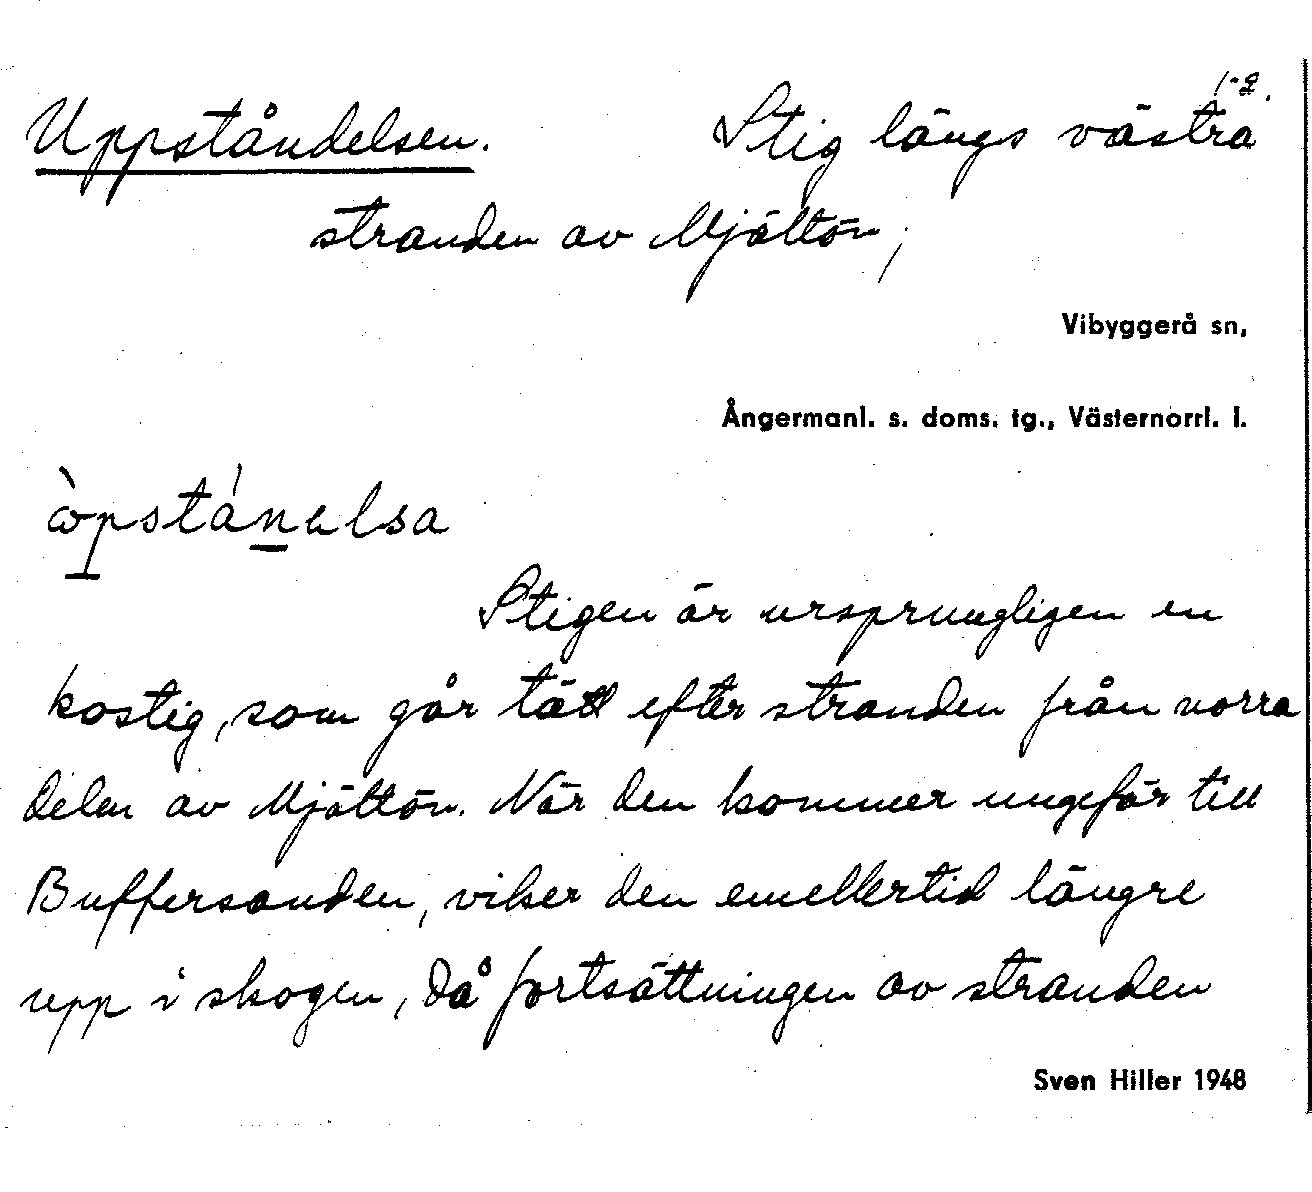 1-2.
Uppståndelsen. Stig längs västra
stranden av Mjältön,
Vibyggerå sn,
Ångermanl. s. doms. tg., Västernorrl. l.
Stigen är ursprungligen en
kostig, som går tätt efter stranden från norra
delen av Mjältön. När den kommer ungefär till
Buffersanden, viker den emellertid längre
upp i skogen, då fortsättningen av stranden
Sven Hiller 1948